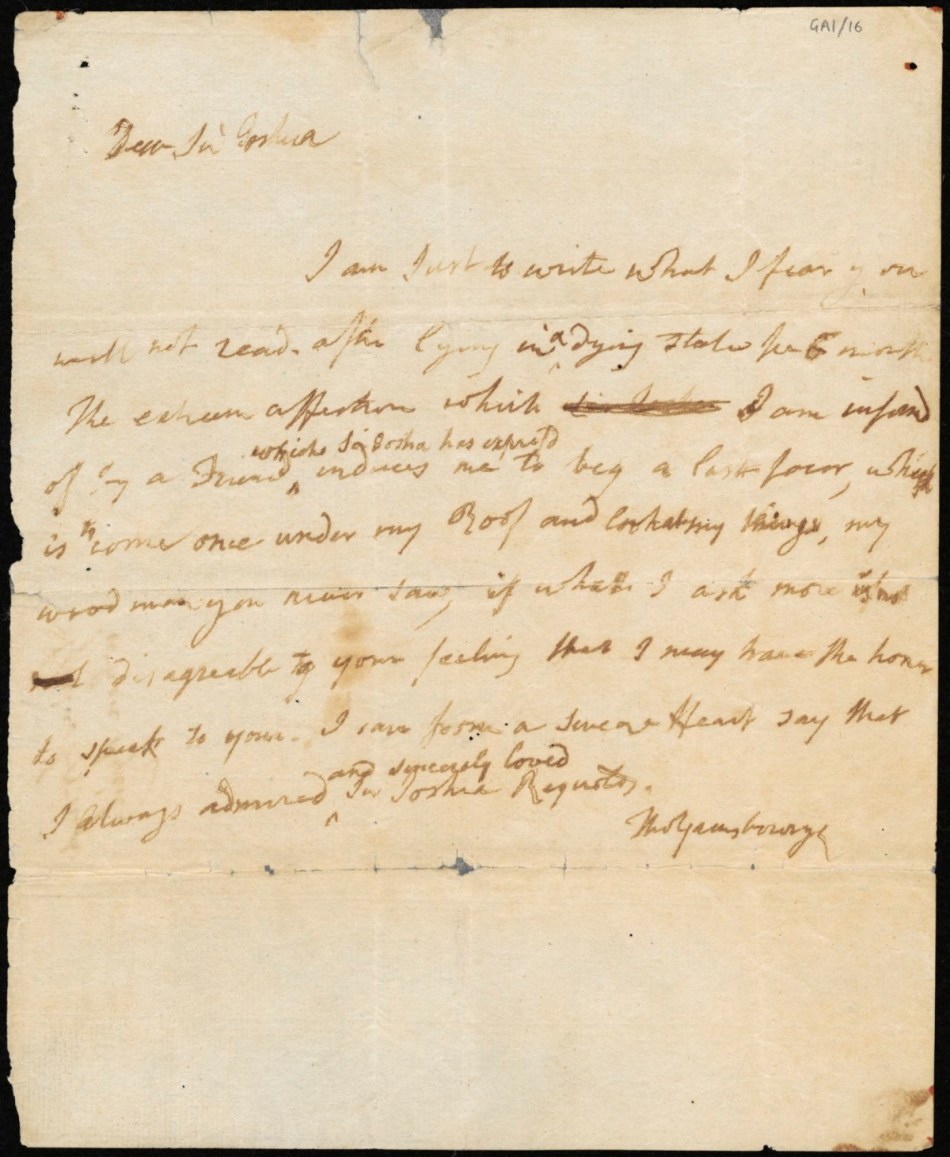 GA1/16
Dear Sir Joshua
I am Just to write what I fear you
will not read. after lying in a dying state for 6 month
The extreem affection which I am informd
of by a Friend which Sir Joshua has expresd induces me to beg a last favor, which
is to come once under my Roof and look at my things, my
woodman you never saw, if what I ask more is not
disagreable to your feeling that I may have the honor
to speak to you. I can from a sincere Heart say that
I always admired and sincerely loved Sir Joshua Reynolds.
Tho Gainsborough